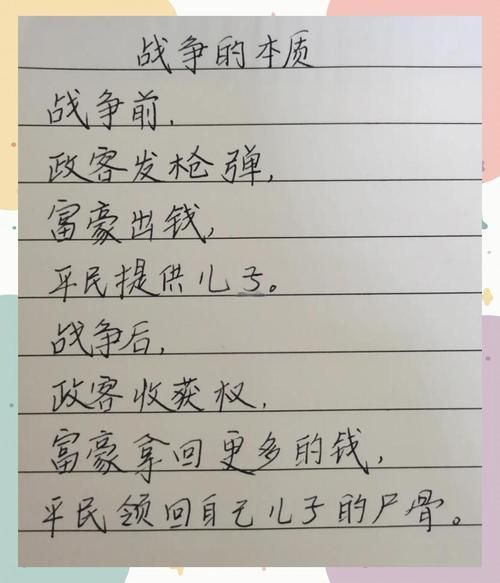 战争的本质
战争前,
政客发枪弹,
富豪出钱,
平民提供儿子。
战争后,
政客收获权,
富豪拿回更多的钱,
平民领回自己儿子的尸骨。